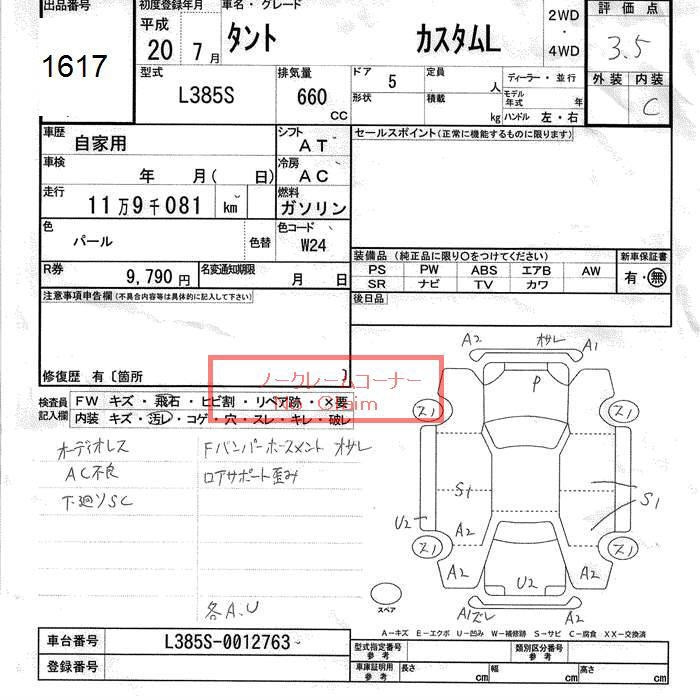 出品番号
1617
初度登録年月
平成
20 7月
車名・グレード
タント カスタムL
2WD
・
4WD
評価点
3.5
外装 内装
C
型式
L385S
排気量
660
CC
ドア
5
定員
人
形状
積載
kg
ディーラー・並行
モデル年式 年
ハンドル 左・右
車歴
自家用
シフト
AT
車検
年 月( 日)
冷房
AC
走行
11万9千081 km
燃料
ガソリン
色
パール
色替
色コード
W24
R券
9,790円
名変通知期限
月 日
セールスポイント(正常に機能するものに限ります)
装備品 (純正品に限り○をつけてください)
PS PW ABS エアB AW
SR ナビ TV カワ
新車保証書
有・無
後日品
注意事項申告欄(不具合内容等は具体的に記入して下さい)
修復歴 有〔箇所 〕
ノークレームコーナー
No Claim
検査員記入欄
FW キズ・飛石・ヒビ割・リペア跡・×要
内装 キズ・汚レ・コゲ・穴・スレ・キレ・破レ
オーディオレス
AC不良
下廻りSC
Fバンパーホースメント オサレ
ロアサポート歪み
各A.U
A2 オサレ A1
P
ス1 ス1
S1 S1
U2 A2
ス1 ス1
A2 U2 A2
A1ズレ A2
スペア
A－キズ E－エクボ U－凹み W－補修跡 S－サビ C－腐食 XX－交換済
車台番号
L385S-0012763
登録番号
型式指定番号
参考
類別区分番号
参考
車庫証明用
参考
長さ cm 幅 cm 高さ cm